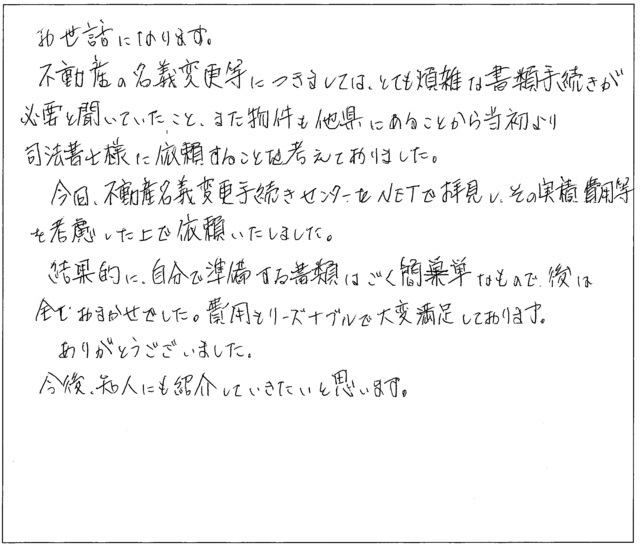 お世話になります。
不動産の名義変更等につきましては、とても煩雑な書類手続きが
必要と聞いていたこと、また物件も他県にあることから当初より
司法書士様に依頼することを考えておりました。
今回、不動産名義変更手続きセンターをNETで拝見し、その実積費用等
を考慮した上で依頼いたしました。
結果的に、自分で準備する書類はごく簡単なもので、後は
全ておまかせでした。費用もリーズナブルで大変満足しております。
ありがとうございました。
今後、知人にも紹介していきたいと思います。